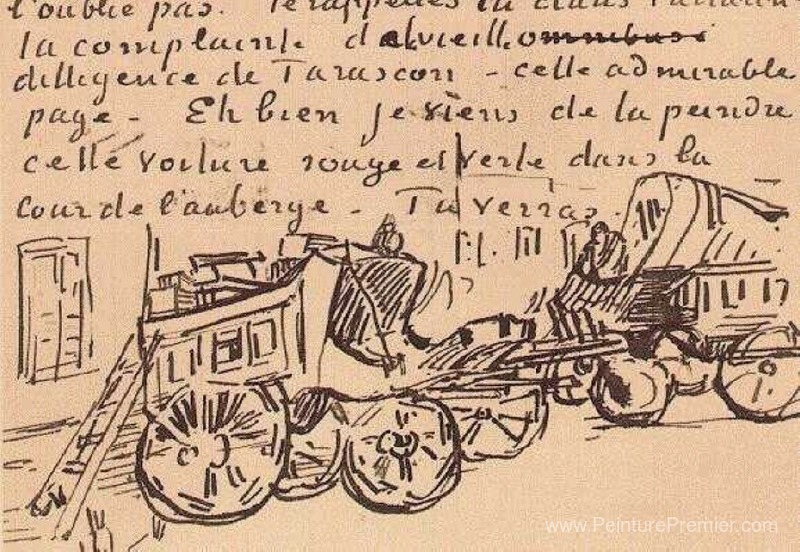 l'oublie pas. Te rappelles tu dans
la complainte d alvieill omnibus
dilligence de Tarascon – celle admirable
page – Eh bien je viens de la peindre
cette voiture rouge et verte dans la
cour de l'auberge – Tu verras.
www.PeinturePremier.com